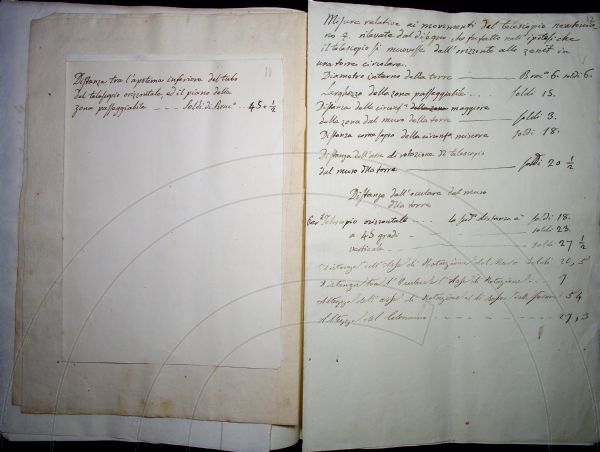 11
Distanza tra l'apotema inferiore del tubo
del telescopio orizzontale, ed il piano della
zona passeggiabile - - Soldi di Brac.º .. 45 - 1/2
Misure relative ai movimenti del telescopio newtonia
no 4. rilevate dal disegno che ho fatto nell'ipotesi che
il telescopio si muovesse dall'orizzonte allo zenit in
una torre circolare.
Diametro interno della torre — Brac.ª 6. soldi 6.
Larghezza della zona passeggiabile - - - soldi 15.
Distanza della circonf.ª della zona maggiore
della zona dal muro della torre — soldi 3.
Distanza come sopra della circonfa. minore soldi 18.
Distanza dell'asse di rotazione del telescopio
dal muro della torre — soldi 20 1/2
Distanza dell'oculare dal muro
della torre
Per il telescopio orizzontale - - - la sud.ª distanza è soldi 18.
a 45 gradi - - - soldi 23.
verticale - - - soldi 27 1/2
Distanza dell'Asse di Rotazione dal Muro Soldi 20, 5
Distanza tra l'Oculare e l'Asse di Rotazione - - 7
Altezza dell'asse di Rotazione 54
Altezza del - - - 27, 5